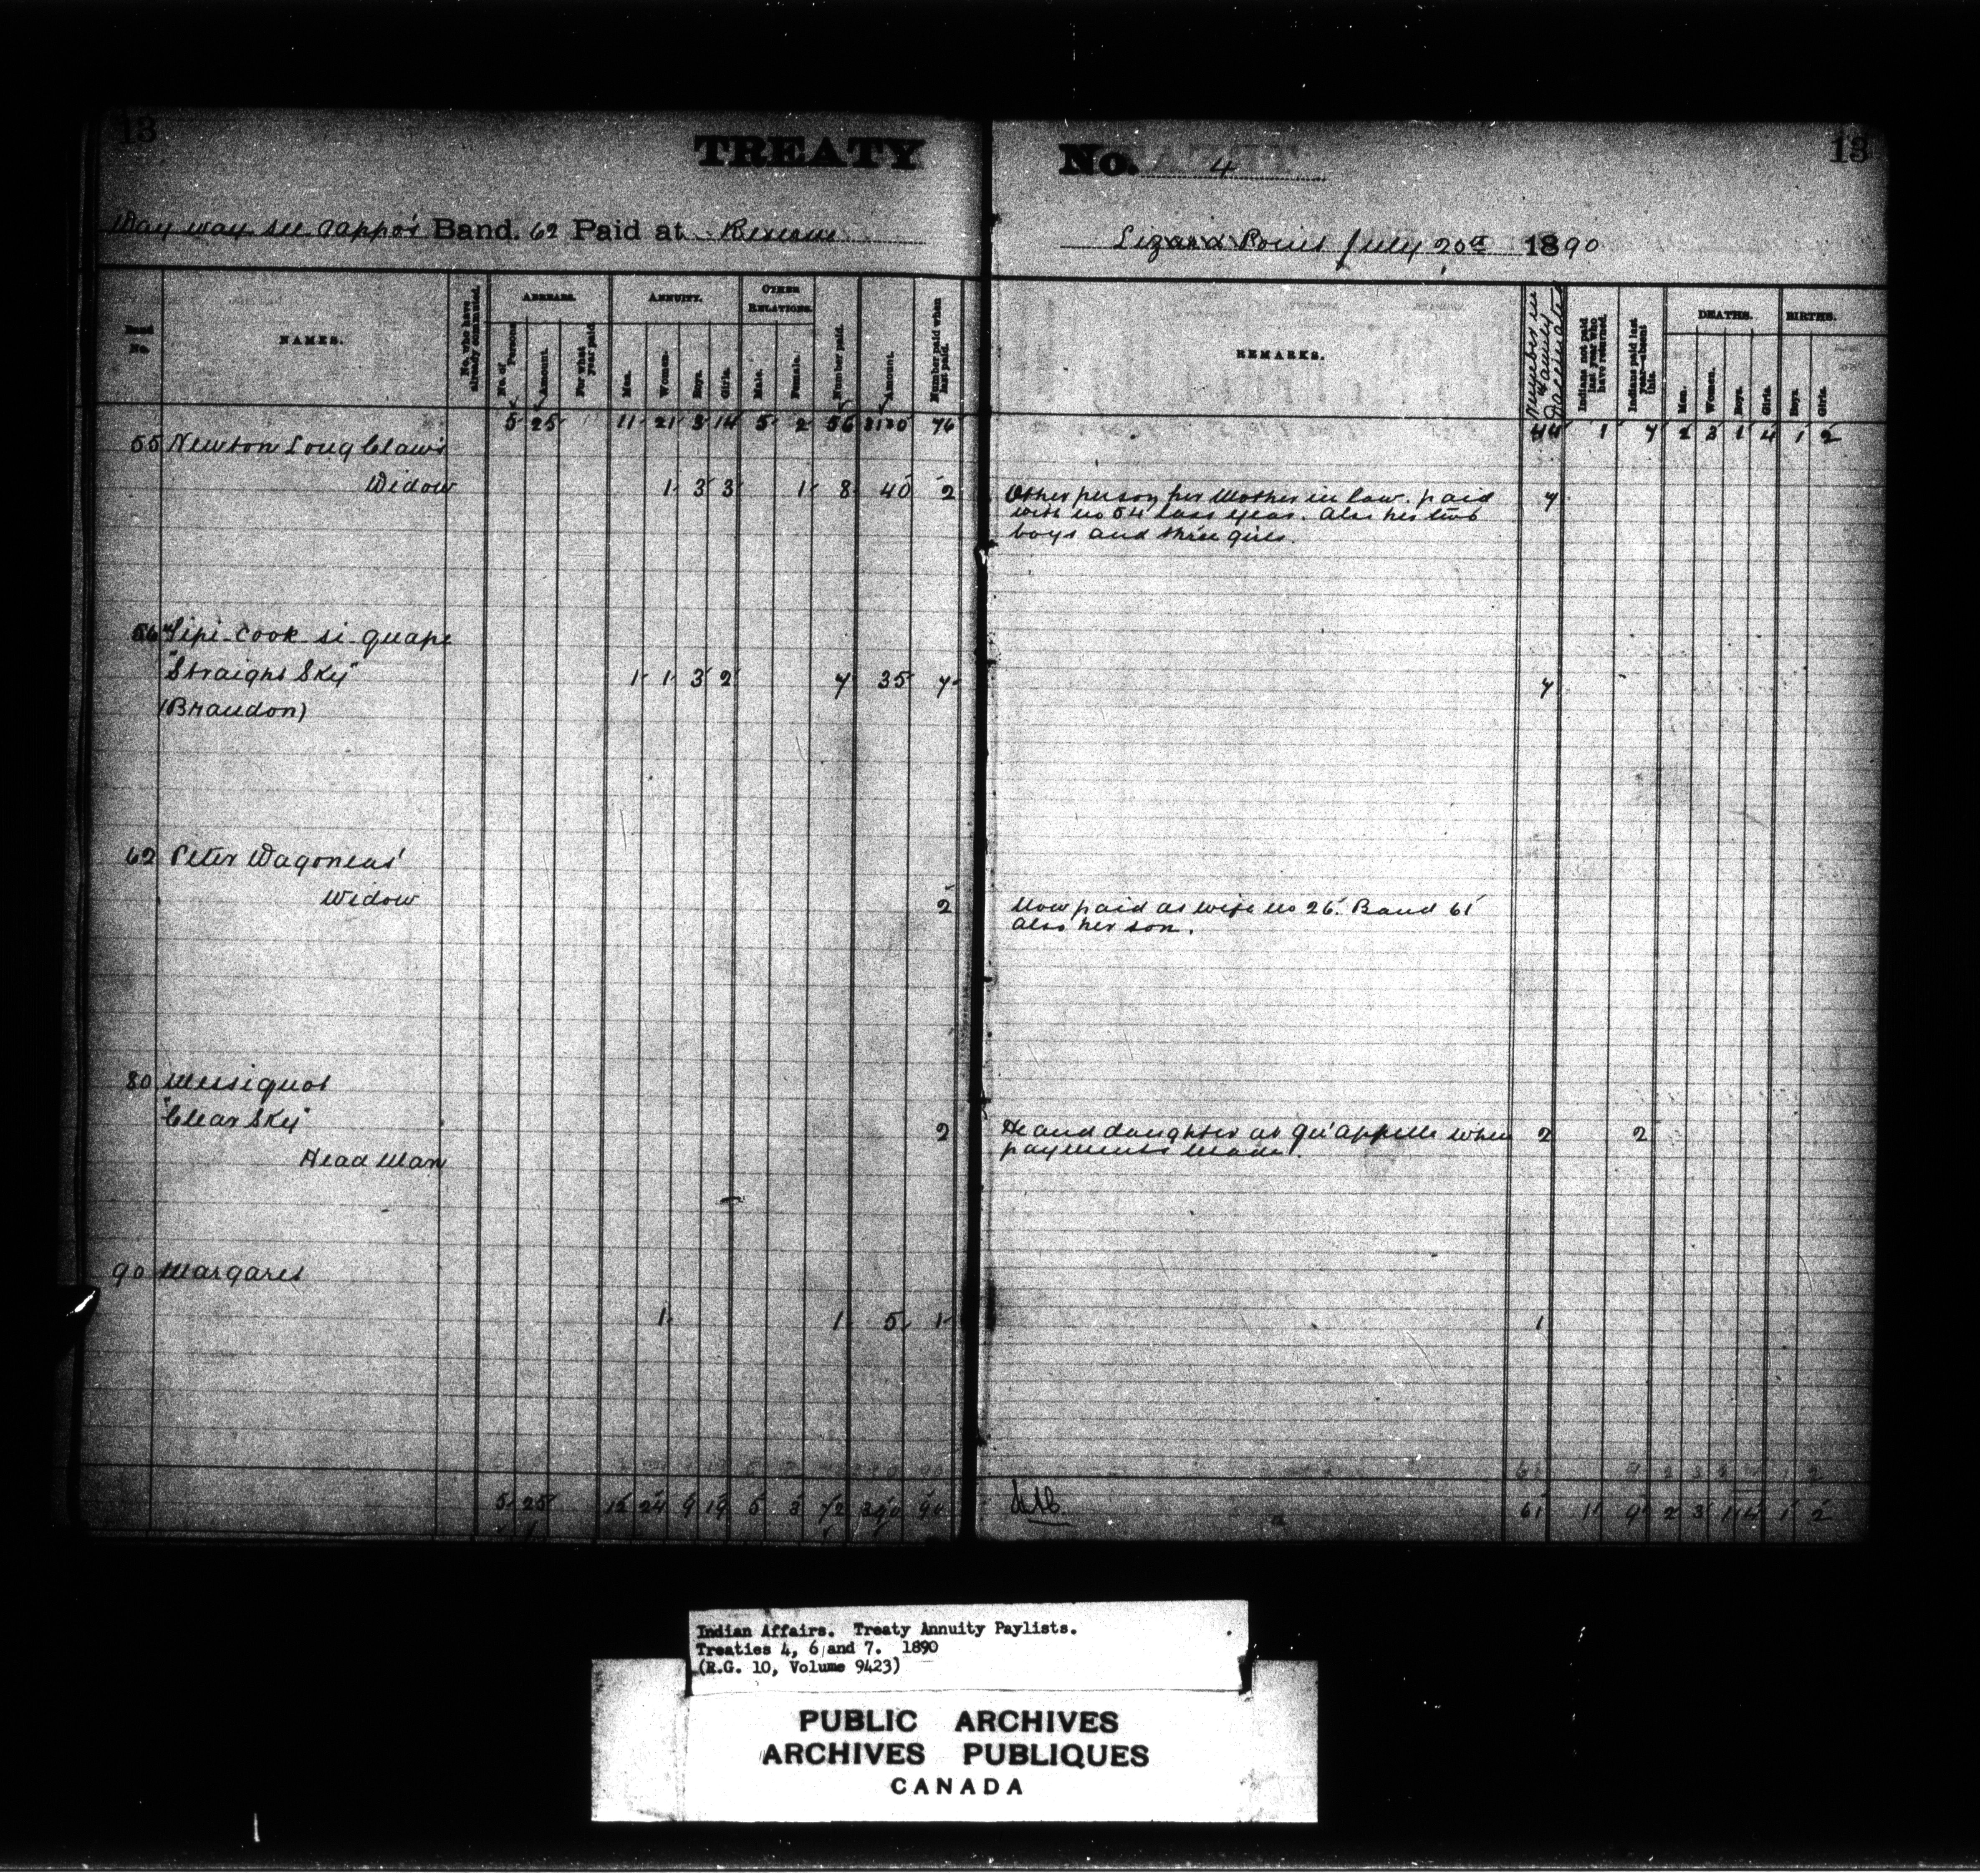 13
TREATY No. 4
13
Way way see cappo's Band. 62 Paid at Reserve
Lizard Point July 20th 1890
Band No.
NAMES.
No. who have already commuted.
ARREARS.
No. of Persons
Amount.
For what year paid.
ANNUITY.
Men.
Women.
Boys.
Girls.
OTHER RELATIONS.
Male.
Female.
Number paid.
Amount.
Number paid when last paid.
REMARKS.
Number in Family Vaccinated
Indians not paid last year who have returned.
Indians paid last year—absent this.
DEATHS.
Men.
Women.
Boys.
Girls.
BIRTHS.
Boys
Girls.
5 25 11 21 3 14 5 2 56 76
44 1 7 2 3 1 4 1 2
55 Newton Long Claw's
Widow 1 3 3 1 8 40 2
Other person her Mother in law. paid 7
with no 54 last year. Also his two
boys and three girls.
56 Tipi-cook-si-quape
"Straight Sky" 1 1 3 2 7 35 7
7
(Brandon)
62 Peter Wagoneas'
Widow 2
Now paid as wife no 26. Band 61
Also her son.
80 Mesiquot
"Clear Sky" 2
He and daughter at Qu'Appelle when 2 2
Head Man
payments made.
90 Margaret
1 1 5 1
1
5 25 12 24 9 19 5 3 72 390 90
61 1 9 2 3 1 4 1 2
Indian Affairs. Treaty Annuity Paylists.
Treaties 4, 6 and 7. 1890
(R.G. 10, Volume 9423)
PUBLIC ARCHIVES
ARCHIVES PUBLIQUES
CANADA